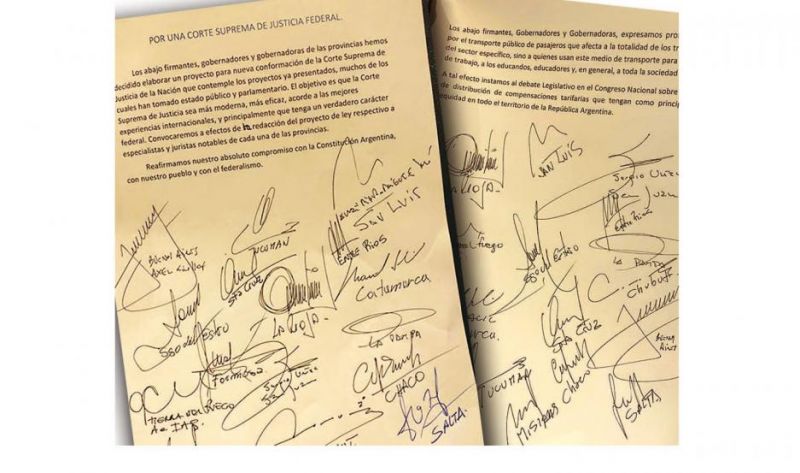 POR UNA CORTE SUPREMA DE JUSTICIA FEDERAL.
Los abajo firmantes, gobernadores y gobernadoras de las provincias hemos
decidido elaborar un proyecto para nueva conformación de la Corte Suprema de
Justicia de la Nación que contemple los proyectos ya presentados, muchos de los
cuales han tomado estado público y parlamentario. El objetivo es que la Corte
Suprema de Justicia sea más moderna, más eficaz, acorde a las mejores
experiencias internacionales, y principalmente que tenga un verdadero carácter
federal. Convocaremos a efectos de la redacción del proyecto de ley respectivo a
especialistas y juristas notables de cada una de las provincias.
Reafirmamos nuestro absoluto compromiso con la Constitución Argentina,
con nuestro pueblo y con el federalismo.
SAN LUIS
BUENOS AIRES
AXEL
TUCUMAN
ENTRE RIOS
STA CRUZ
Catamarca
SGO del ESTERO
LA RIOJA
LA PAMPA
FORMOSA
Sergio Uñac
S. Juan
CHACO
TIERRA DEL FUEGO
A e IAS
SALTA
Los abajo firmantes, Gobernadores y Gobernadoras, expresamos
por el transporte público de pasajeros que afecta a la totalidad de los
del sector específico, sino a quienes usan este medio de transporte para
de trabajo, a los educandos, educadores y, en general, a toda la sociedad
A tal efecto instamos al debate Legislativo en el Congreso Nacional sobre
de distribución de compensaciones tarifarias que tengan como
equidad en todo el territorio de la República Argentina.
LA RIOJA
SAN LUIS
Sergio Uñac
San Juan
Entre Rios
Fuego
SGO del ESTERO
LA PAMPA
Chubut
STA CRUZ
Buenos Aires
TUCUMAN
Misiones
Chaco
SALTA